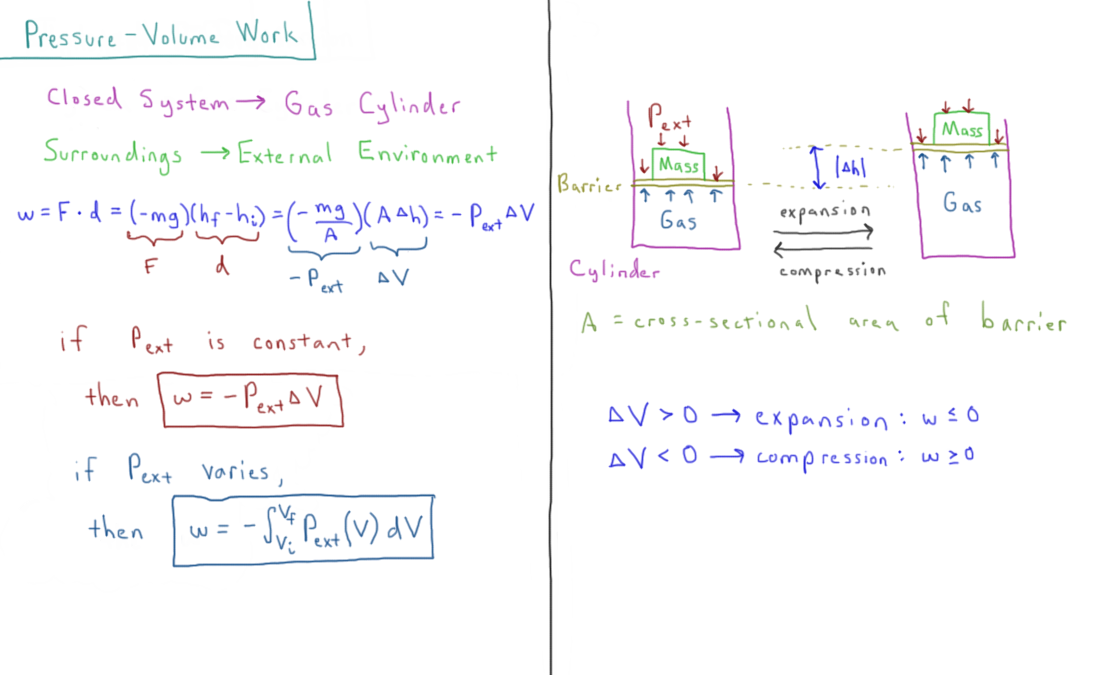 Pressure-Volume Work
Closed System → Gas Cylinder
Surroundings → External Environment
w = F · d = (-mg)(h_f - h_i) = (- mg/A)(A Δh) = - P_ext ΔV
F d
-P_ext ΔV
if P_ext is constant,
then w = - P_ext Δ V
if P_ext varies,
then w = - ∫_{V_i}^{V_f} P_ext (V) dV
P_ext
Mass
Barrier
Gas
Cylinder
|Δh|
expansion
compression
Mass
Gas
A = cross-sectional area of barrier
ΔV > 0 → expansion : w ≤ 0
ΔV < 0 → compression : w ≥ 0